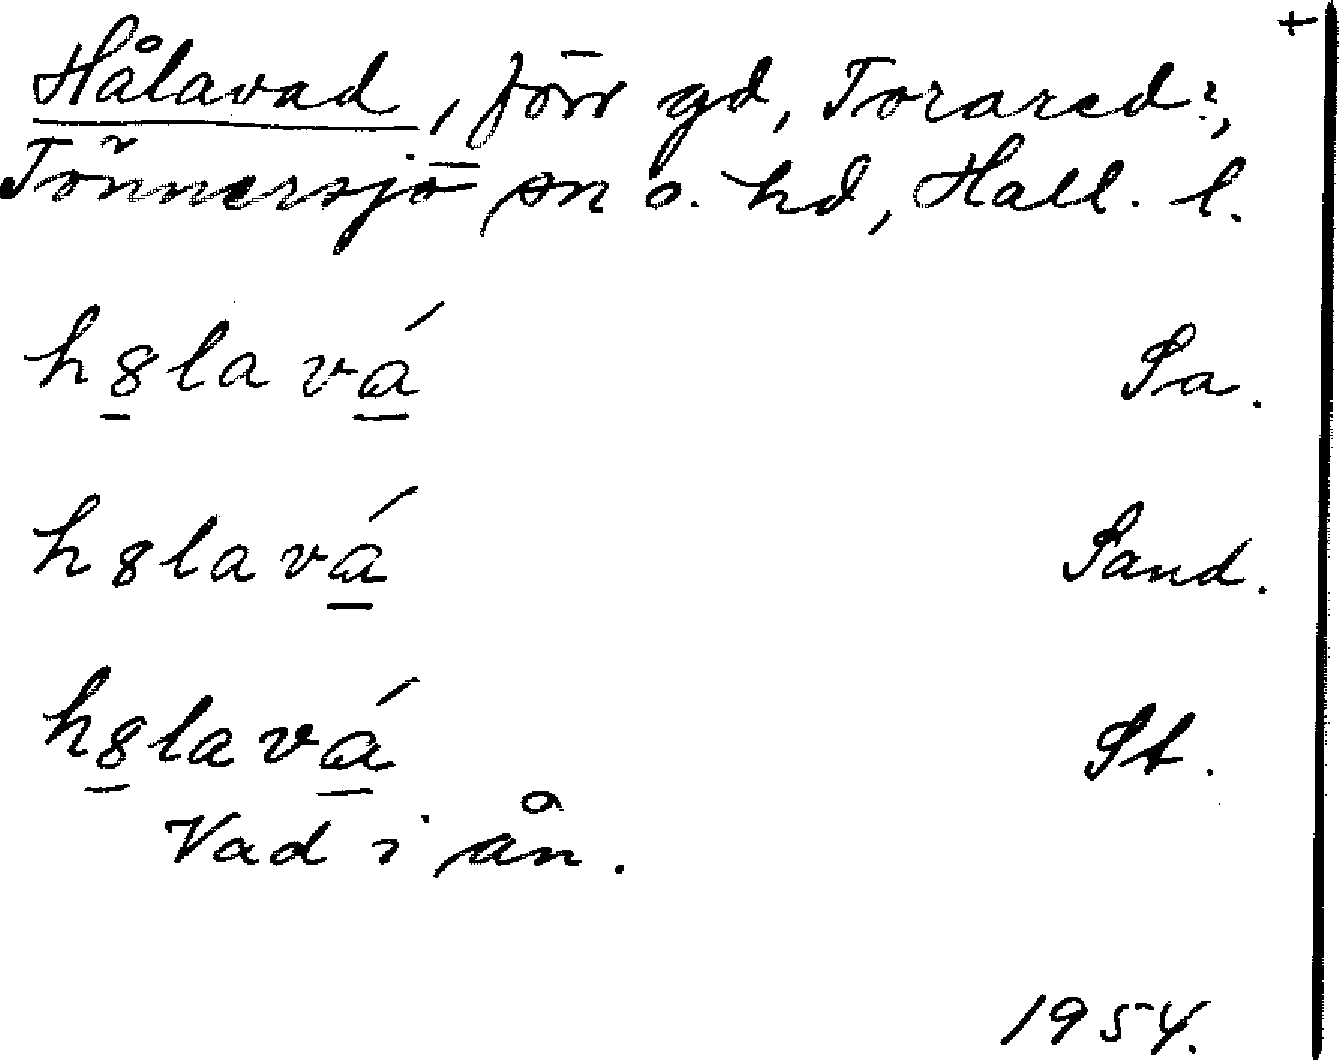 +
Hålavad, förr gd, Torared:,
Tönnersjö sn o. hd, Hall. l.
h8̲lava̲´ Sa.
h8lava̲´ Sand.
h8̲lava̲´ St.
Vad i ån.
1954.